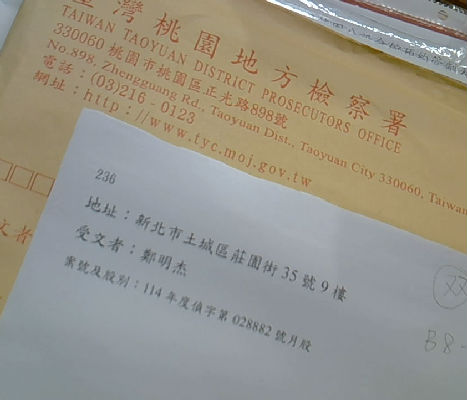 臺灣桃園地方檢察署
TAIWAN TAOYUAN DISTRICT PROSECUTORS OFFICE
330060 桃園市桃園區正光路898號
No.898, Zhengguang Rd., Taoyuan Dist., Taoyuan City 330060, Taiwan
電話：(03)216-0123
網址：http://www.tyc.moj.gov.tw
文者
236
地址：新北市土城區莊園街 35 號 9 樓
受文者：鄭明杰
案號及股別：114 年度偵字第 028882 號月股